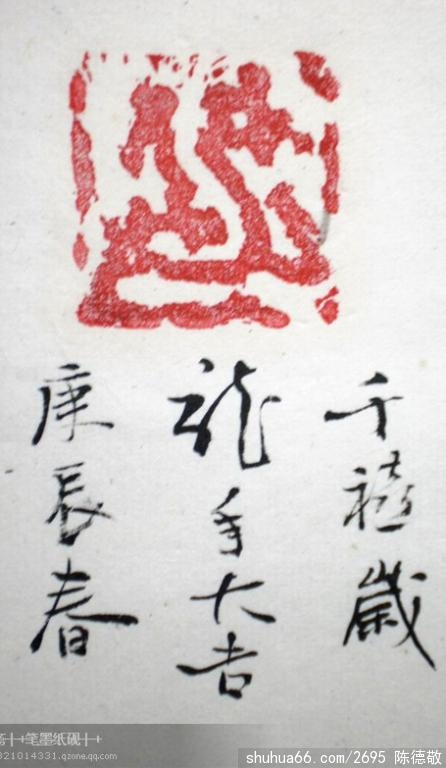 千禧歲
龍年大吉
庚辰春
笔墨纸砚
321014331.qzone.qq.com
shuhua66.com/2695 陈德敬